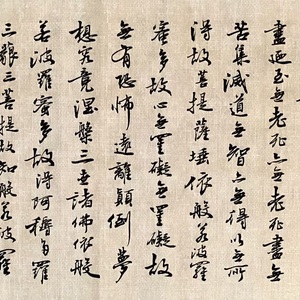 盡廼至無老死亦無老死盡無
苦集滅道無智亦無得以無所
得故菩提薩埵依般若波羅
蜜多故心無罣礙無罣礙故
無有恐怖遠離顛倒夢
想究竟涅槃三世諸佛依般
若波羅蜜多故得阿耨多羅
三藐三菩提故知般若波羅